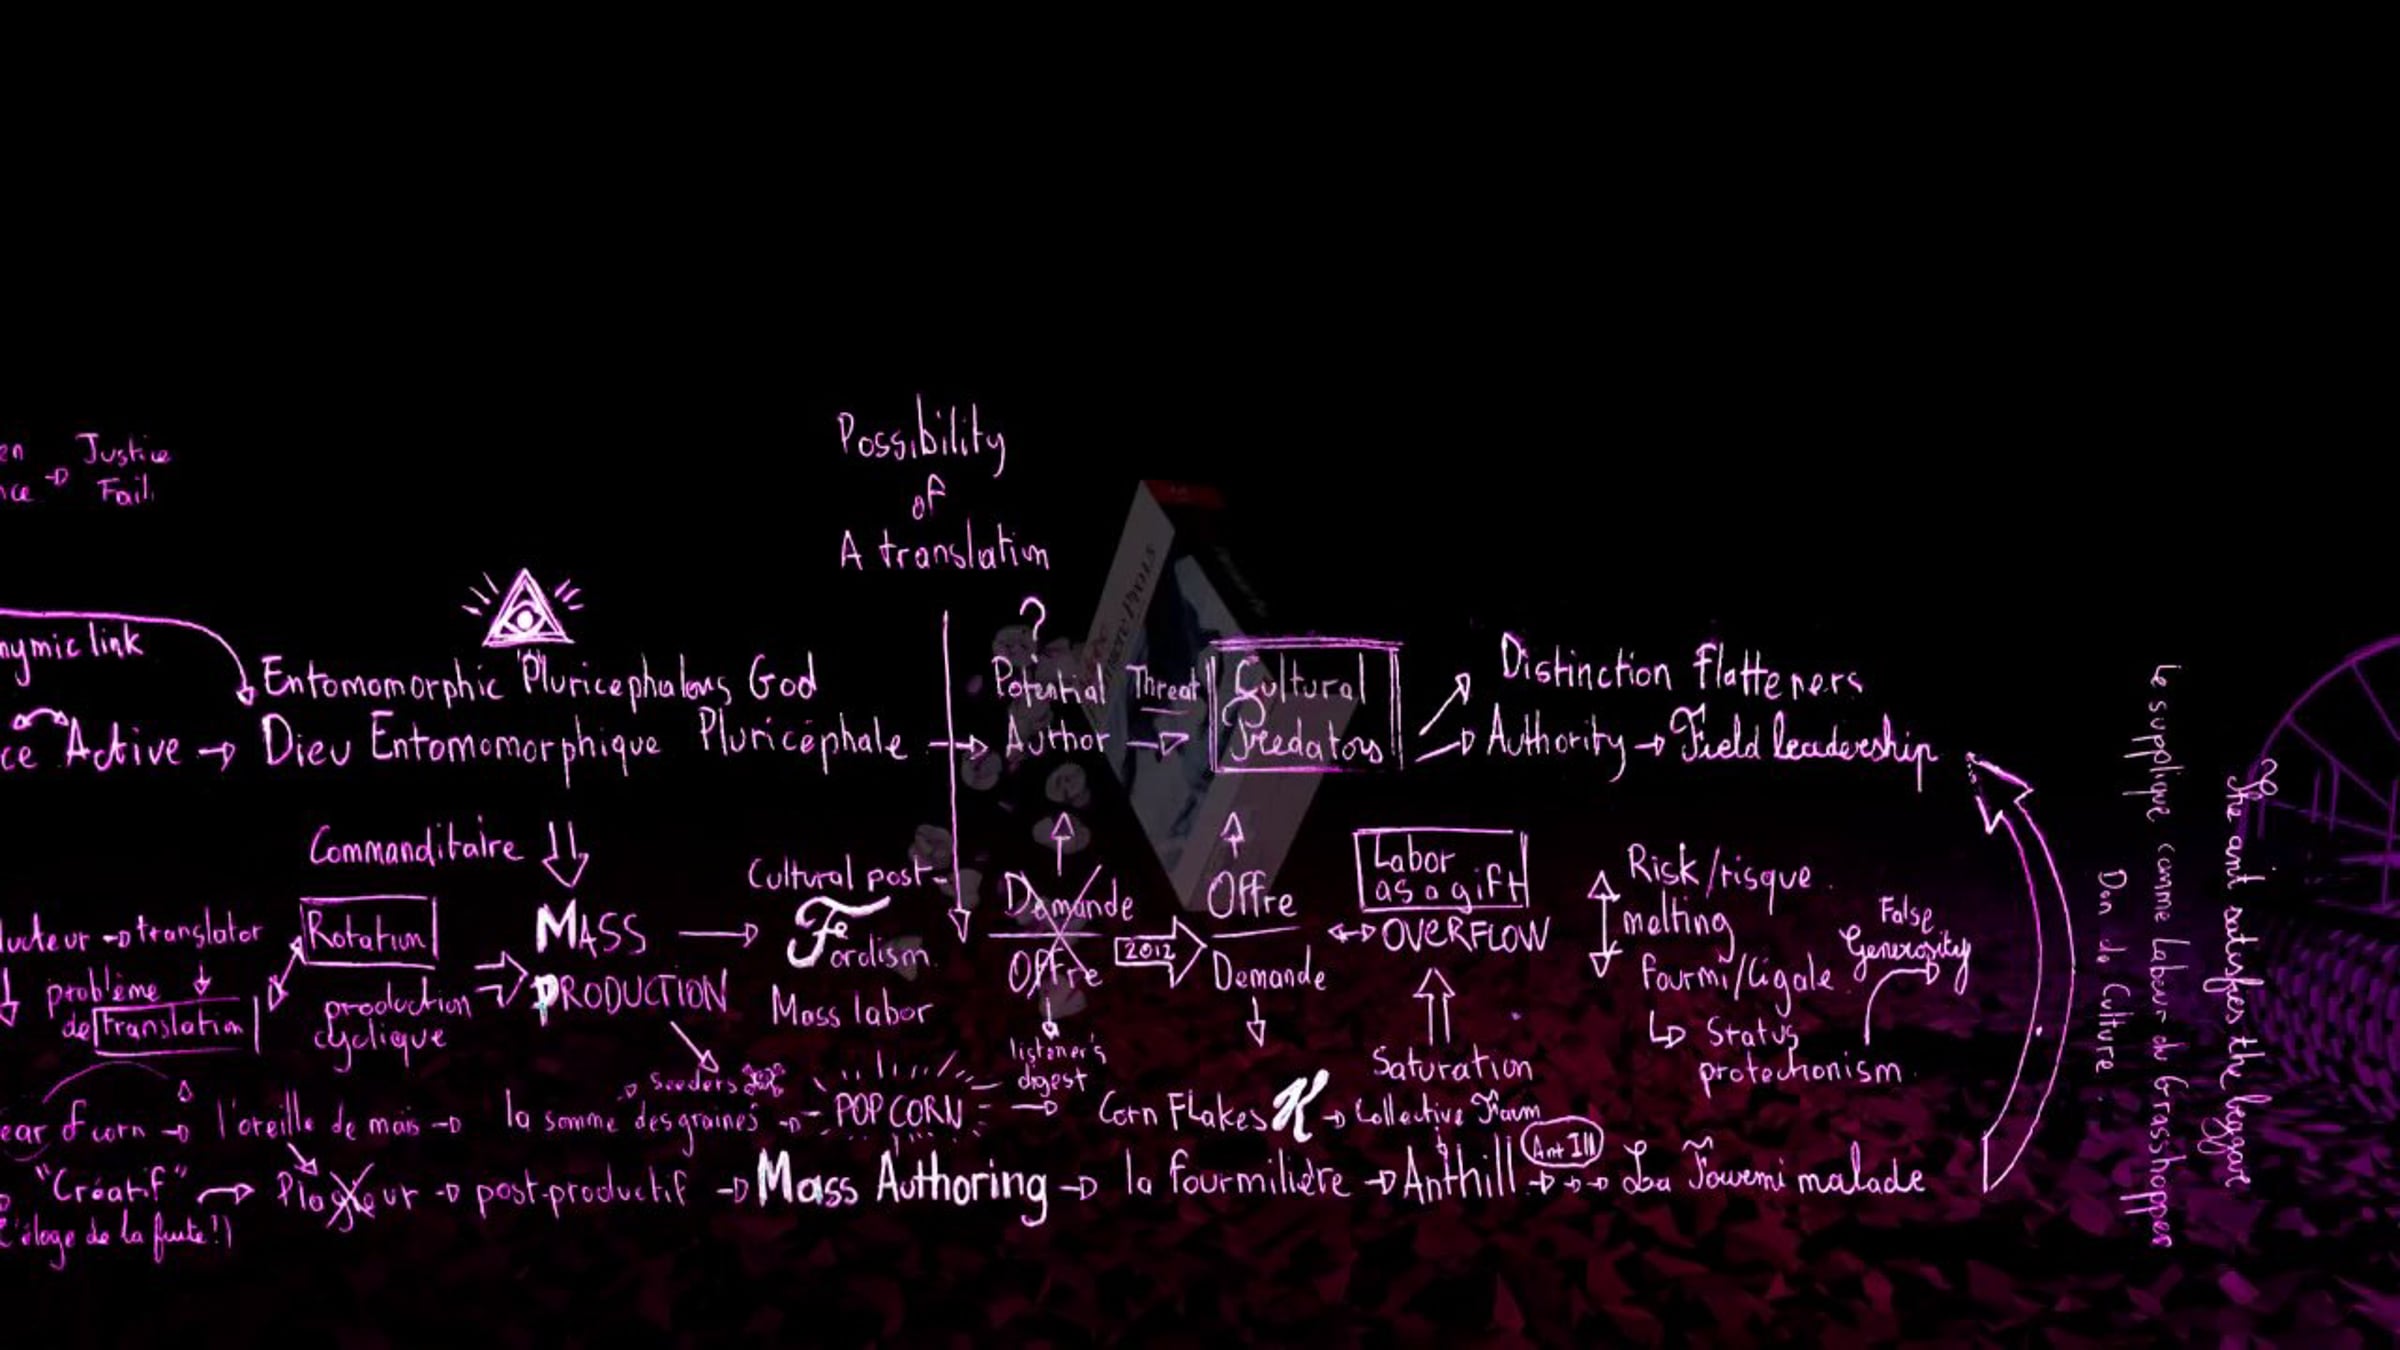 Justice
Fail
Possibility
of
A translation
?
nymic link
Entomomorphic Pluricephalous God
Potential
Threat
Cultural
Distinction Flatteners
ce Active → Dieu Entomomorphique Pluricéphale → Author → Predators → Authority → Field leadership
Commanditaire
Cultural post-
Fordism
Mass labor
Demande
Offre
2012
Offre
Demande
Labor
as a gift
OVERFLOW
Risk/risque
melting
fourmi/Cigale
Status
protectionism
False
Generosity
ducteur → translator
problème
de translation
Rotation
production
cyclique
MASS
PRODUCTION
listener's
digest
Saturation
Seeders
ear of corn → l'oreille de maïs → la somme des graines → POP CORN → Corn Flakes K → Collective Farm
"Créatif" → Plagieur → post-productif → Mass Authoring → la fourmilière → Anthill → → → La Fourmi malade
Ant Ill
l'éloge de la fuite!)
Le supplique comme Labeur du Grasshopper
Don de Culture
The ant satisfies the beggar